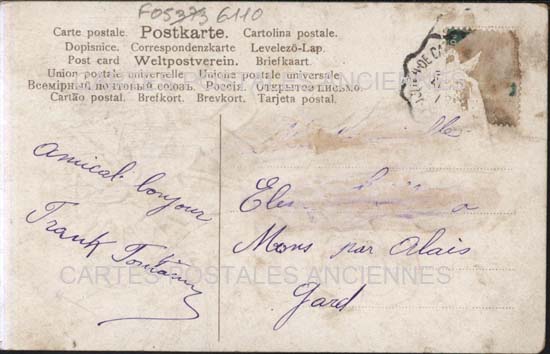 F05373 6110
Carte postale. Postkarte. Cartolina postale.
Dopisnice. Correspondenzkarte Levelező-Lap.
Post card Weltpostverein. Briefkaart.
Union postale universelle. Unione postale universale.
Всемирный почтовый союзъ. Россія. Открытое письмо.
Cartão postal. Brefkort. Brevkort. Tarjeta postal.
CARTES POSTALES ANCIENNES
Amical bonjour
Frank
Mons par Alais
Gard
CARTES POSTALES ANCIENNES